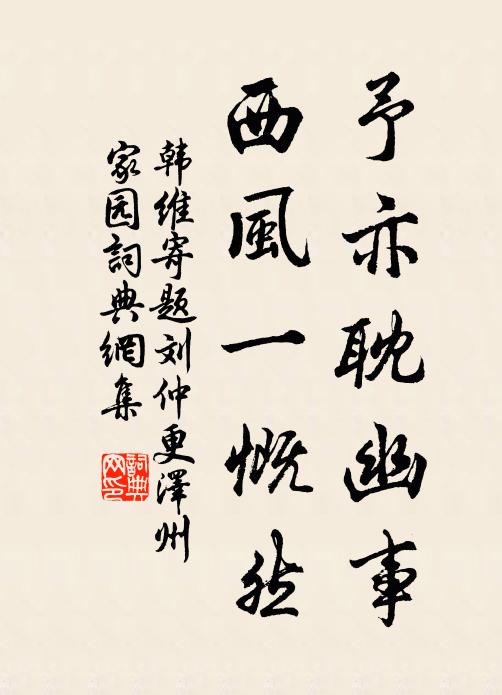 予亦耽幽事
西風一慨然
韩维寄题刘仲更澤州
家园詞典網集
詞典网印